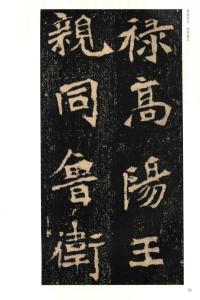 禄高陽王
親同魯衛